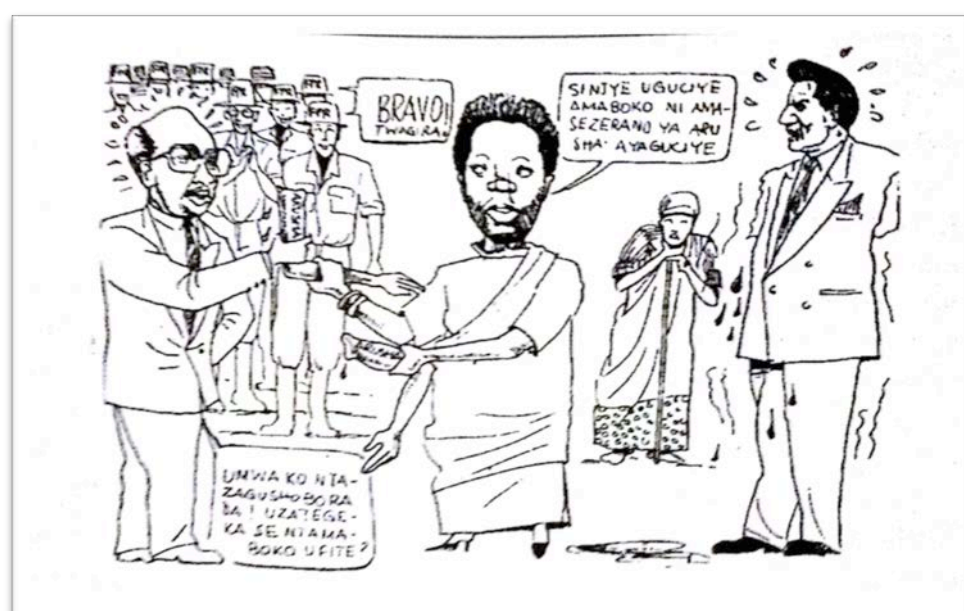 FPR FPR FPR
FPR FPR
FPR
BRAVO!
TWAGIRA!
SINJYE UGUCIYE
AMABOKO NI AMA-
SEZERANO YA ARU
SHA AYAGUCIYE
ARUSHA
UMWAKO NTA-
ZAGUSHOBORA
DA! UZATEGE-
KA SE NTAMA-
BOKO UFITE?